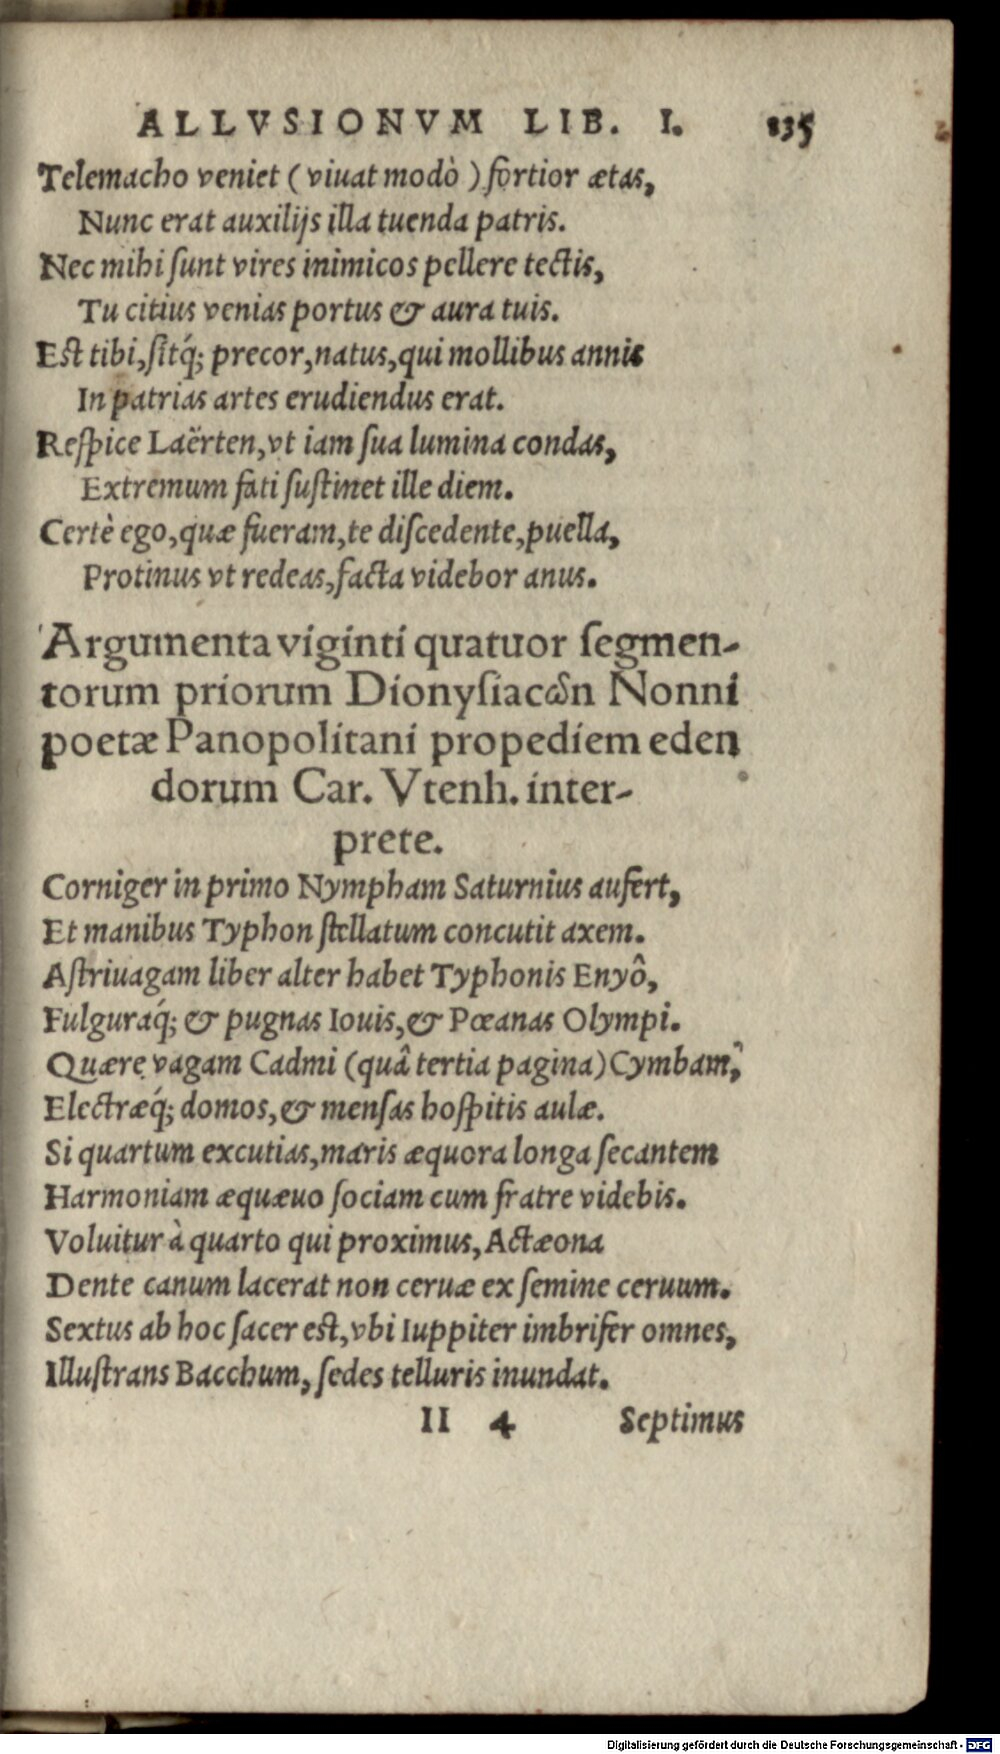 ALLVSIONVM LIB. I. 135
Telemacho veniet (viuat modò) fortior ætas,
Nunc erat auxilijs illa tuenda patris.
Nec mihi sunt vires inimicos pellere tectis,
Tu citius venias portus & aura tuis.
Est tibi, sitq́; precor, natus, qui mollibus annis
In patrias artes erudiendus erat.
Respice Laërten, vt iam sua lumina condas,
Extremum fati sustinet ille diem.
Certè ego, quæ fueram, te discedente, puella,
Protinus vt redeas, facta videbor anus.
Argumenta viginti quatuor segmen-
torum priorum Dionysiacῶn Nonni
poetæ Panopolitani propediem eden
dorum Car. Vtenh. inter-
prete.
Corniger in primo Nympham Saturnius aufert,
Et manibus Typhon stellatum concutit axem.
Astriuagam liber alter habet Typhonis Enyô,
Fulguraq́; & pugnas Iouis, & Pœanas Olympi.
Quære vagam Cadmi (quâ tertia pagina) Cymbam,
Electræq́; domos, & mensas hospitis aulæ.
Si quartum excutias, maris æquora longa secantem
Harmoniam æquæuo sociam cum fratre videbis.
Voluitur à quarto qui proximus, Actæona
Dente canum lacerat non ceruæ ex semine ceruum.
Sextus ab hoc sacer est, vbi Iuppiter imbrifer omnes,
Illustrans Bacchum, sedes telluris inundat.
II 4 Septimus
Digitalisierung gefördert durch die Deutsche Forschungsgemeinschaft - DFG